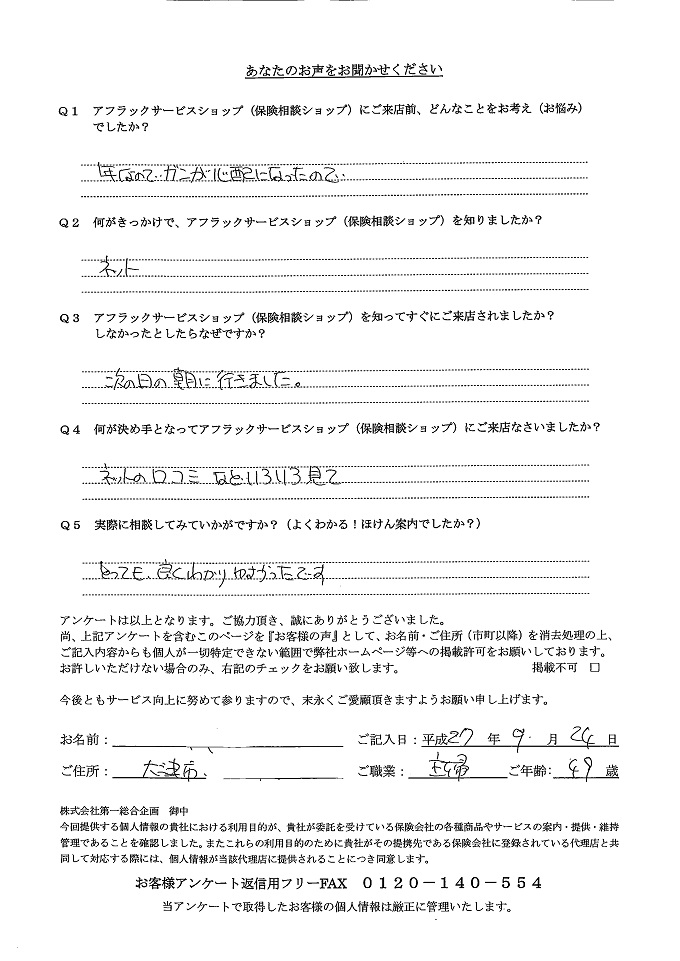 あなたのお声をお聞かせください
Q1 アフラックサービスショップ（保険相談ショップ）にご来店前、どんなことをお考え（お悩み）
でしたか？
年なので ガンが心配になったので
Q2 何がきっかけで、アフラックサービスショップ（保険相談ショップ）を知りましたか？
ネット
Q3 アフラックサービスショップ（保険相談ショップ）を知ってすぐにご来店されましたか？
しなかったとしたらなぜですか？
次の日の朝に行きました。
Q4 何が決め手となってアフラックサービスショップ（保険相談ショップ）にご来店なさいましたか？
ネットの口コミなどいろいろ見て
Q5 実際に相談してみていかがですか？（よくわかる！ほけん案内でしたか？）
とっても、良くわかり よかったです
アンケートは以上となります。ご協力頂き、誠にありがとうございました。
尚、上記アンケートを含むこのページを『お客様の声』として、お名前・ご住所（市町以降）を消去処理の上、
ご記入内容からも個人が一切特定できない範囲で弊社ホームページ等への掲載許可をお願いしております。
お許しいただけない場合のみ、右記のチェックをお願い致します。 掲載不可 □
今後ともサービス向上に努めて参りますので、末永くご愛顧頂きますようお願い申し上げます。
お名前： ご記入日：平成27 年 9 月 24 日
ご住所： 大津市、 ご職業： 主婦 ご年齢： 49 歳
株式会社第一総合企画 御中
今回提供する個人情報の貴社における利用目的が、貴社が委託を受けている保険会社の各種商品やサービスの案内・提供・維持
管理であることを確認しました。またこれらの利用目的のために貴社がその提携先である保険会社に登録されている代理店と共
同して対応する際には、個人情報が当該代理店に提供されることにつき同意します。
お客様アンケート返信用フリーFAX 0120－140－554
当アンケートで取得したお客様の個人情報は厳正に管理いたします。